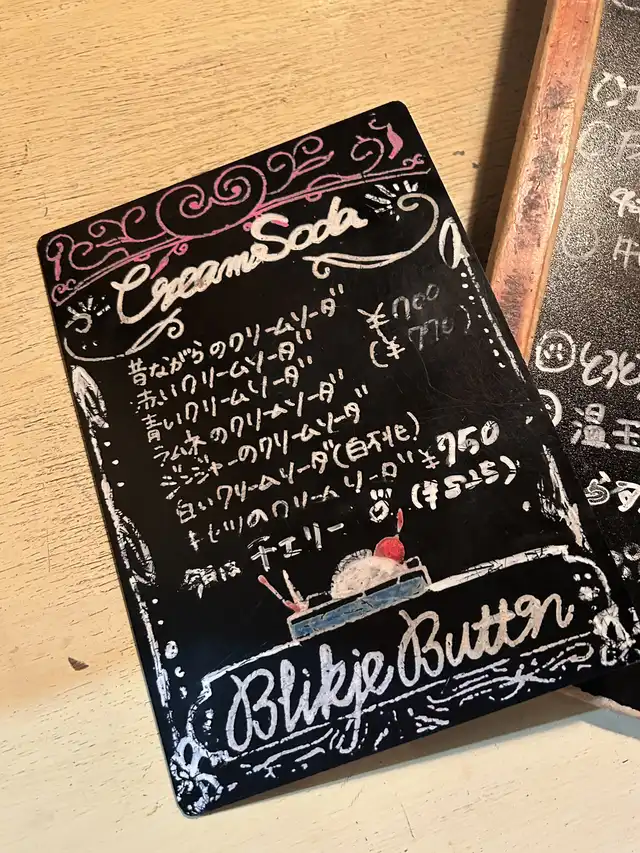 Cream Soda
昔ながらのクリームソーダ ¥700
赤いクリームソーダ (¥770)
青いクリームソーダ
ラムネのクリームソーダ
ジンジャーのクリームソーダ
白いクリームソーダ(白桃)
キセツのクリームソーダ ¥750
今日は チェリー (¥825)
Blikje Button
温玉